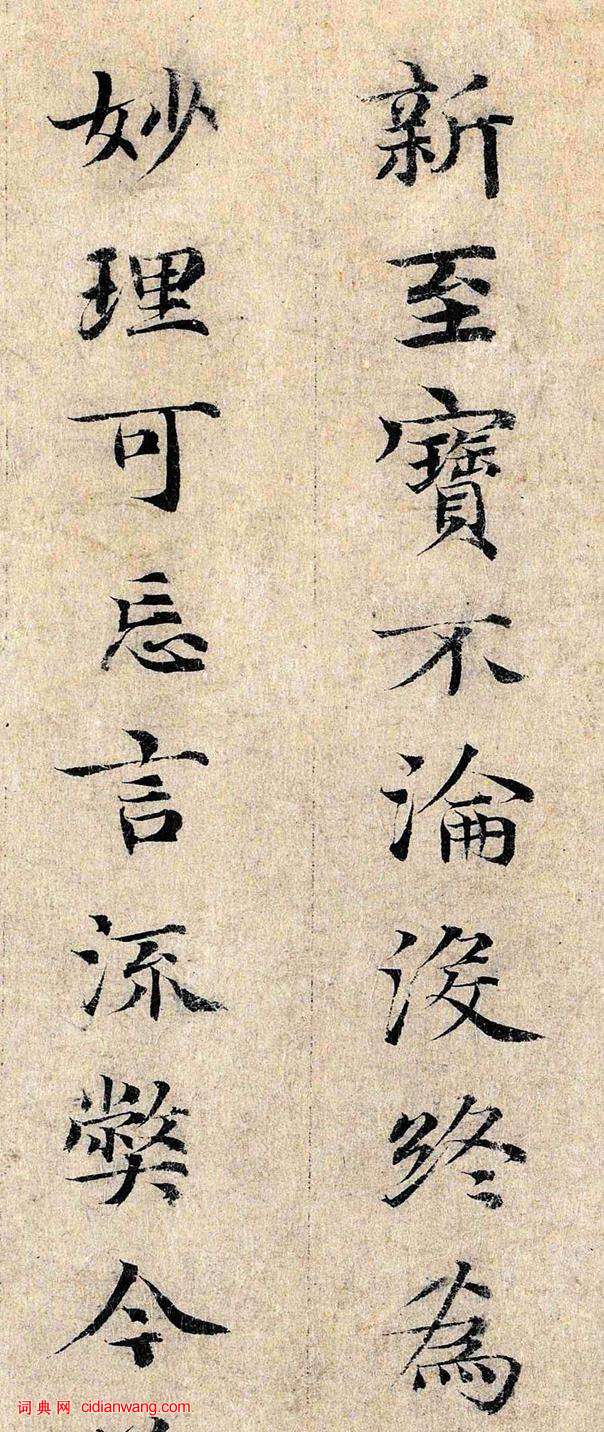 新至寶不淪没終為
妙理可忘言流弊今
词典网 cidianwang.com